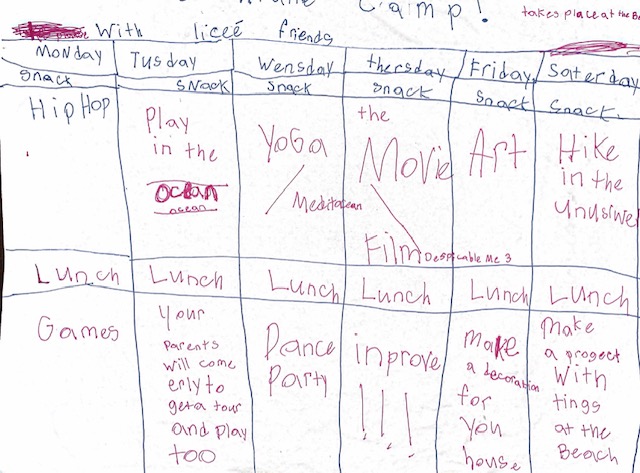 Caimp!
takes place at the Be
With liceé friends
Monday Tusday Wensday thersday Friday Saterday
Snack SNack Snack Snack Snack Snack.
HipHop
Play
in the
ocean
ocean
YOGA
Meditacean
the
Movie
Film Despicable Me 3
Art
Hike
in the
Lunch Lunch Lunch Lunch Lunch Lunch
Games
Your
parents
will come
erly to
get a tour
and play
too
Dance
Party
inprove
!!!
Make
a decoration
for
you
house
Make
a progect
With
tings
at the
Beach